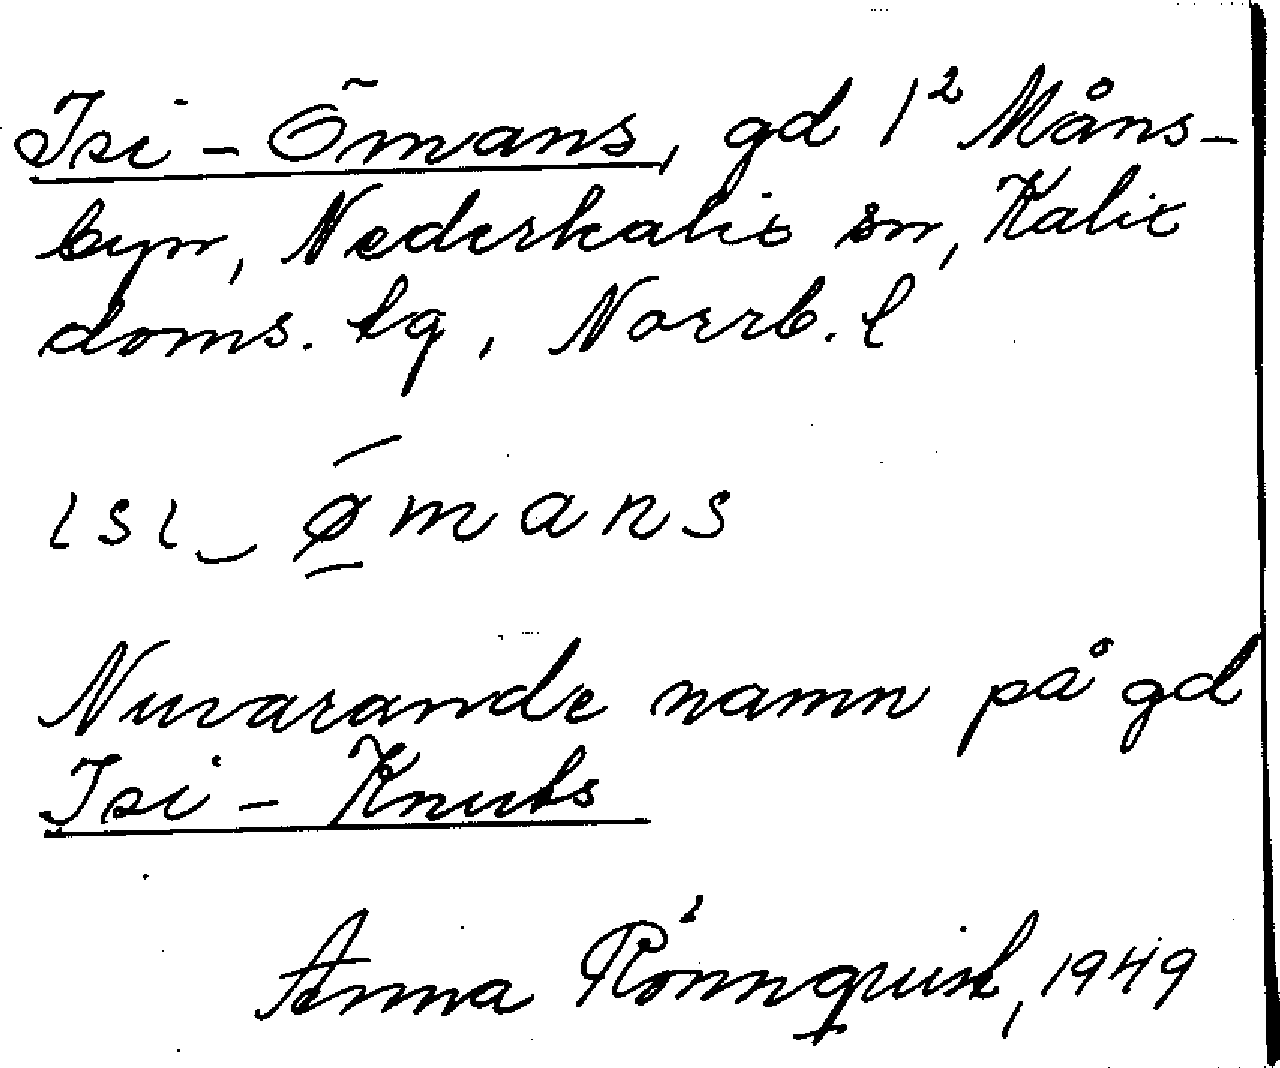 Isi-Ömans, gd 1² Måns-
byn, Nederkalix sn, Kalix
doms. lg, Norrb. l
ɩsɩ‿ǿmans
Nuvarande namn på gd
Isi-Knuts
Anna Rönnquist, 1949